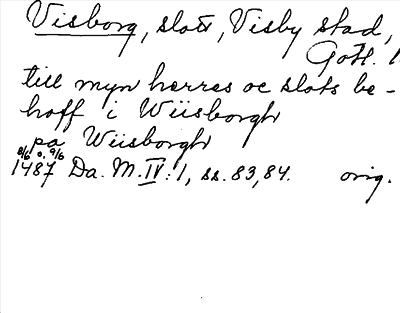 Visborg, slott, Visby stad,
Gotl. l
till myn herres oc slots be-
hoff i Wiisborgh
pa Wiisborgh
8/6 o. 9/6
1487 Da. M. IV: 1, ss. 83, 84. orig.